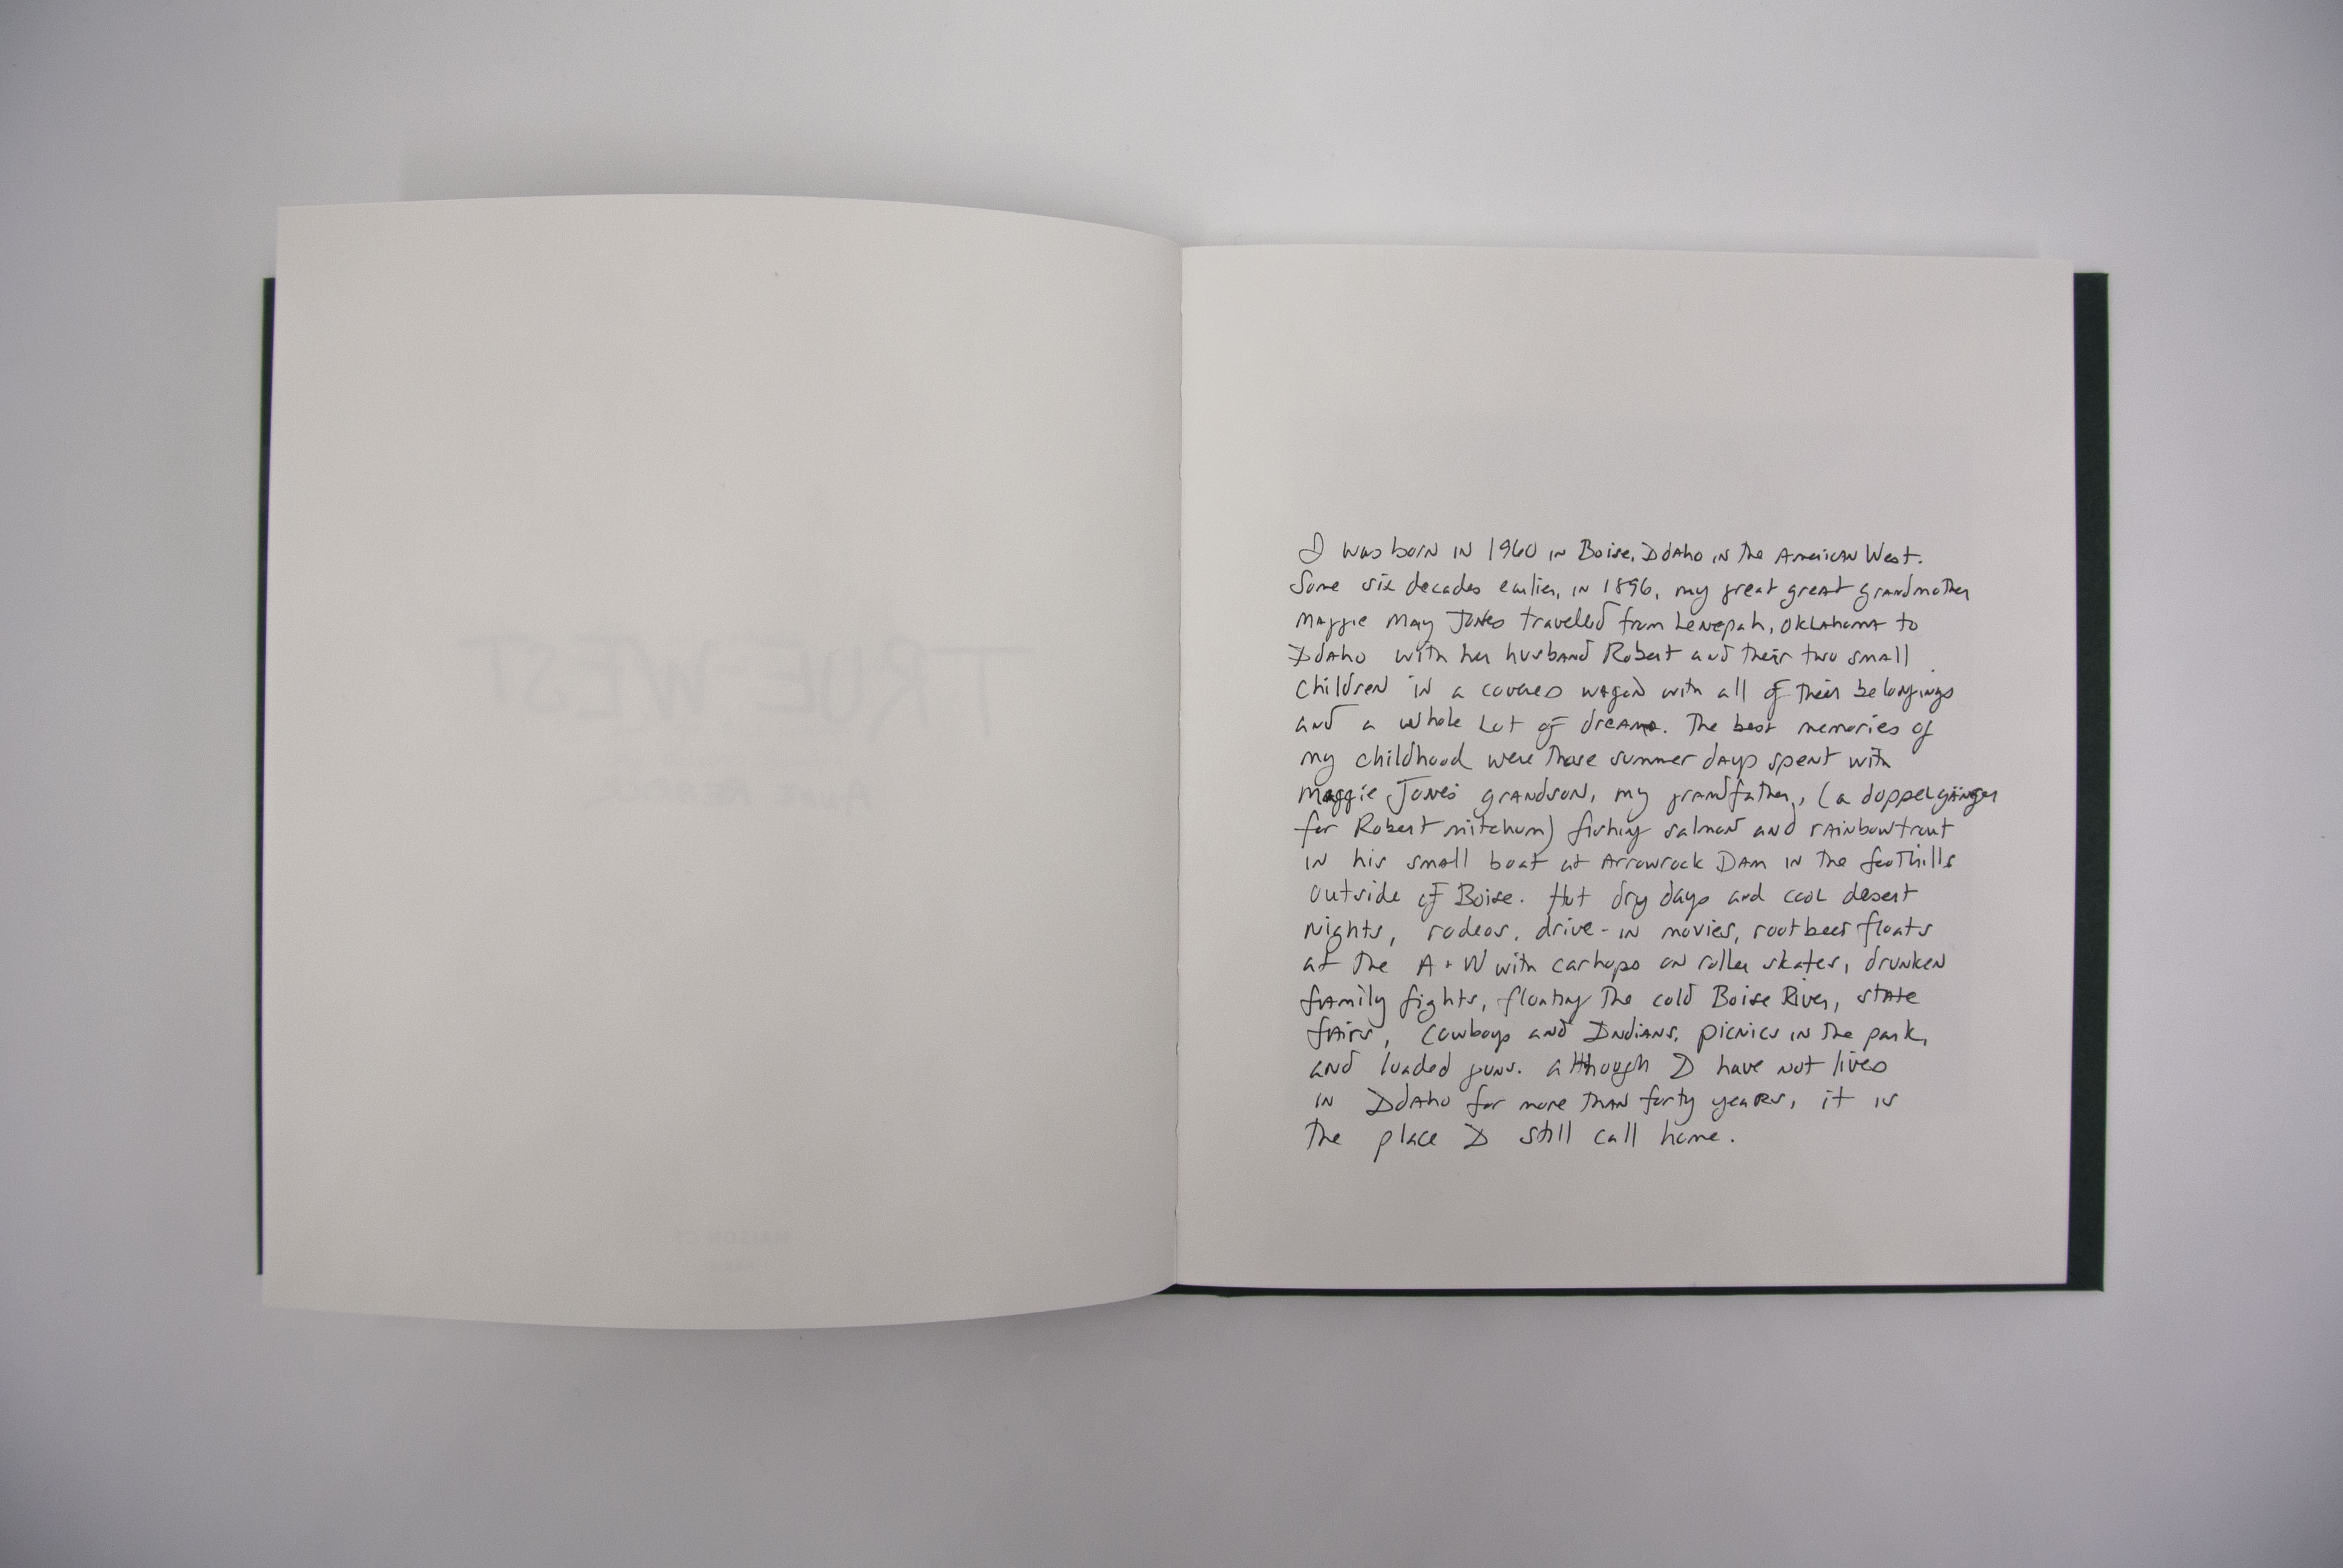 TRUE WEST
I was born in 1960 in Boise, Idaho in the American West.
Some six decades earlier, in 1896, my great great grandmother
Maggie May Jones travelled from Lenepah, Oklahoma to
Idaho with her husband Robert and their two small
children in a covered wagon with all of their belongings
and a whole lot of dreams. The best memories of
my childhood were those summer days spent with
Maggie Jones' grandson, my grandfather, (a doppelgänger
for Robert Mitchum) fishing salmon and rainbow trout
in his small boat at Arrowrock Dam in the foothills
outside of Boise. Hot dry days and cool desert
nights, rodeos, drive-in movies, root beer floats
at the A+W with carhops on roller skates, drunken
family fights, floating the cold Boise River, state
fairs, Cowboys and Indians, picnics in the park,
and loaded guns. Although I have not lived
in Idaho for more than forty years, it is
the place I still call home.